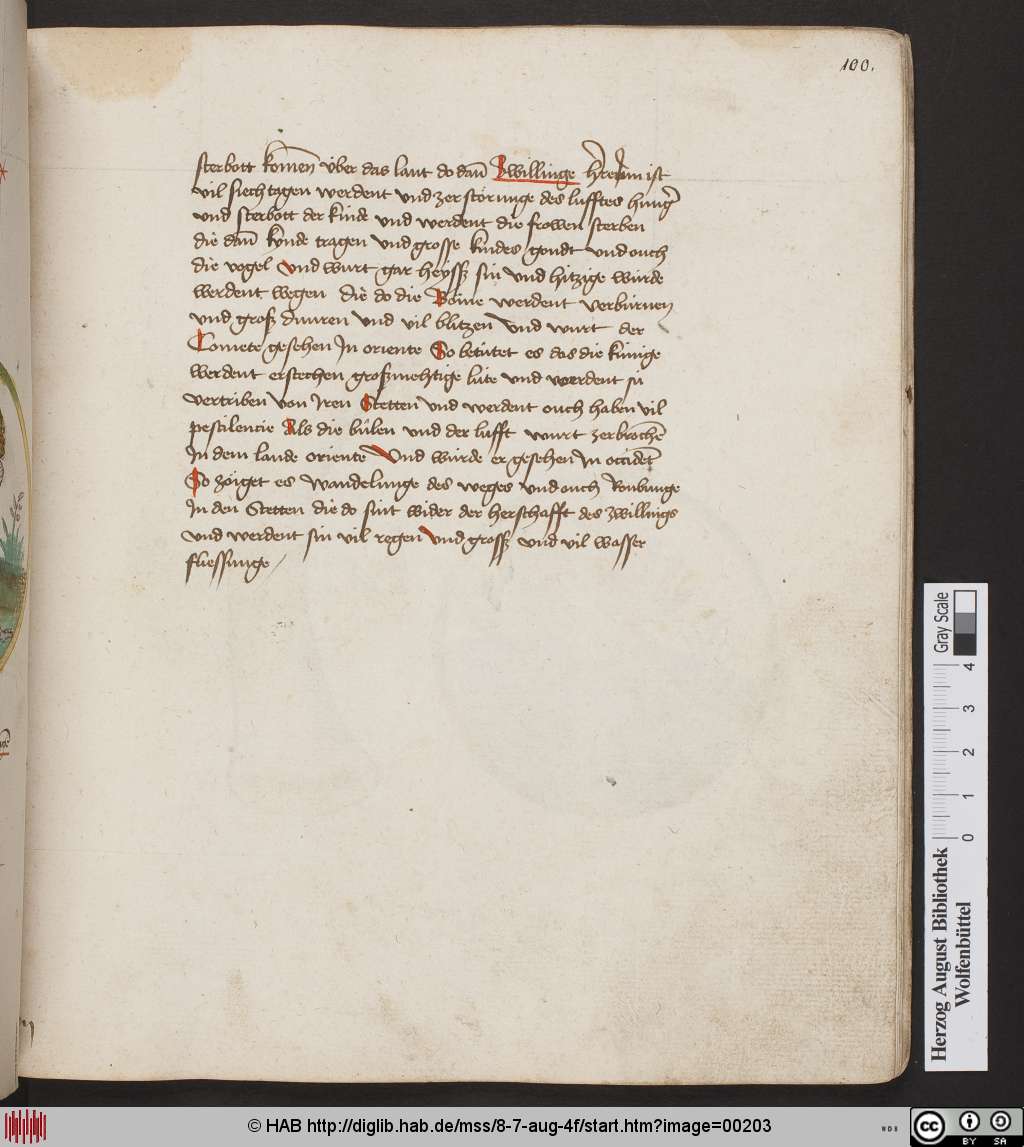 100.
sterbott komen über das lant do dañ Zwillinge h're Inn ist
vil siechtagen werdent und zerstörunge des lufftes hung'
und sterbott der kinde und werdent die frowen sterben
die dañ kynde tragen und grosse kindes gondt und ouch
die vogel und wurt gar heyssz sin und hitzige winde
werdent wegen die do die Böme werdent verbürnen
und grosz dunren und vil blitzen und wurt der
Comete gesehen In oriente So betütet es das die künige
werdent erstechen groszmehtige lüte und werdent sü
vertriben von Iren Stetten und werdent ouch haben vil
pestilencie Als die bülen und der lufft wurt zerbrochē
In dem lande oriente Und würde er gesehen In occidēt
So zöiget es Wandelunge des weges und ouch Roubunge
In den Stetten die do sint wider der herschafft des zwillings
und werdent sin vil regen und grossz und vil wasser
fliessunge /
Herzog August Bibliothek
Wolfenbüttel
0 1 2 3 4
Gray Scale
© HAB http://diglib.hab.de/mss/8-7-aug-4f/start.htm?image=00203
WDB
CC BY SA